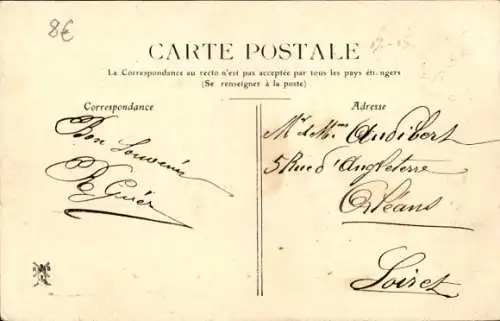 8€
CARTE POSTALE
La Correspondance au recto n'est pas acceptée par tous les pays étrangers
(Se renseigner à la poste)
Correspondance
Adresse
Bon Souvenir
R Guér
Mr et Mme Audibert
5 Rue d'Angleterre
Orléans
Loiret